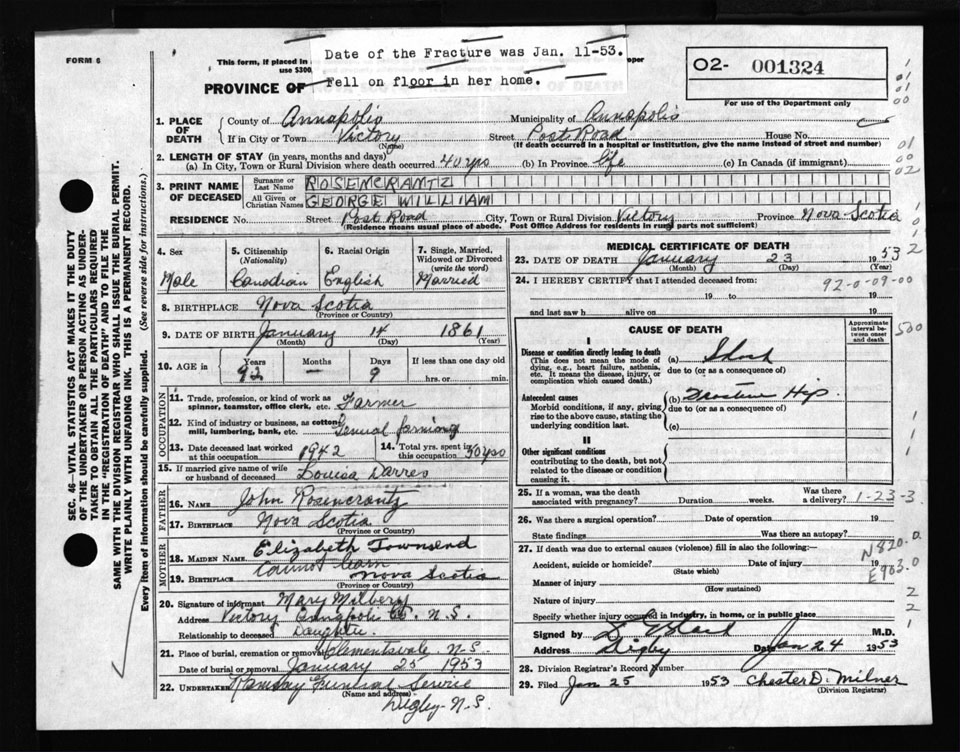 FORM 6
This form, if placed in
use $300,
oper
Date of the Fracture was Jan. 11-53.
Fell on floor in her home.
PROVINCE OF
O2- 001324
For use of the Department only
01
01
00
1. PLACE OF DEATH
County of Annapolis Municipality of Annapolis
If in City or Town Victory Street Post Road House No.
(Name) (If death occurred in a hospital or institution, give the name instead of street and number)
2. LENGTH OF STAY (in years, months and days)
(a) In City, Town or Rural Division where death occurred 40 yrs (b) In Province life (c) In Canada (if immigrant)
01
00
02
3. PRINT NAME OF DECEASED
Surname or Last Name ROSENCRANTZ
All Given or Christian Names GEORGE WILLIAM
RESIDENCE No. Street Post Road City, Town or Rural Division Victory Province Nova Scotia
(Residence means usual place of abode. Post Office Address for residents in rural parts not sufficient)
SEC. 46—VITAL STATISTICS ACT MAKES IT THE DUTY
OF THE UNDERTAKER OR PERSON ACTING AS UNDER-
TAKER TO OBTAIN ALL THE PARTICULARS REQUIRED
IN THE "REGISTRATION OF DEATH" AND TO FILE THE
SAME WITH THE DIVISION REGISTRAR WHO SHALL ISSUE THE BURIAL PERMIT.
WRITE PLAINLY WITH UNFADING INK. THIS IS A PERMANENT RECORD.
Every item of information should be carefully supplied. (See reverse side for instructions.)
4. Sex Male
5. Citizenship (Nationality) Canadian
6. Racial Origin English
7. Single, Married, Widowed or Divorced (write the word) Married
8. BIRTHPLACE Nova Scotia
(Province or Country)
9. DATE OF BIRTH January 14 1861
(Month) (Day) (Year)
10. AGE in Years 92 Months — Days 9 If less than one day old
hrs. or min.
OCCUPATION
11. Trade, profession, or kind of work as
spinner, teamster, office clerk, etc. Farmer
12. Kind of industry or business, as cotton
mill, lumbering, bank, etc. General farming
13. Date deceased last worked at this occupation 1942
14. Total yrs. spent in this occupation 50 yrs
15. If married give name of wife
or husband of deceased Louisa Darres
FATHER
16. NAME John Rosencrantz
17. BIRTHPLACE Nova Scotia
(Province or Country)
MOTHER
18. MAIDEN NAME Elizabeth Townsend
Cannot learn
19. BIRTHPLACE Nova Scotia
(Province or Country)
20. Signature of informant Mary Milbery
Address Victory Annapolis Co. N.S.
Relationship to deceased Daughter
21. Place of burial, cremation or removal Clementsvale N.S.
Date of burial or removal January 25 1953
22. UNDERTAKER Ramsay Funeral Service
(Name and address)
Digby N.S.
MEDICAL CERTIFICATE OF DEATH
23. DATE OF DEATH January 23 1953
(Month) (Day) (Year)
24. I HEREBY CERTIFY that I attended deceased from:
92-0-09-00
19 to 19
and last saw h alive on 19
CAUSE OF DEATH
Approximate interval between onset and death
500
I
Disease or condition directly leading to death (a) Shock
(This does not mean the mode of dying, e.g., heart failure, asthenia, etc. It means the disease, injury, or complication which caused death.)
due to (or as a consequence of)
Antecedent causes (b) Fracture Hip
Morbid conditions, if any, giving rise to the above cause, stating the underlying condition last.
due to (or as a consequence of)
(c)
II
Other significant conditions
contributing to the death, but not related to the disease or condition causing it.
25. If a woman, was the death associated with pregnancy? Duration weeks. Was there a delivery?
1-23-3
26. Was there a surgical operation? Date of operation 19
State findings Was there an autopsy?
27. If death was due to external causes (violence) fill in also the following:—
N820.0
Accident, suicide or homicide? Date of injury 19
(State which)
E903.0
Manner of injury
(How sustained)
Nature of injury
Specify whether injury occurred in industry, in home, or in public place
Signed by M.D.
Address Digby Date Jan 24 1953
28. Division Registrar's Record Number
29. Filed Jan 25 1953 Chester D. Milner
(Division Registrar)